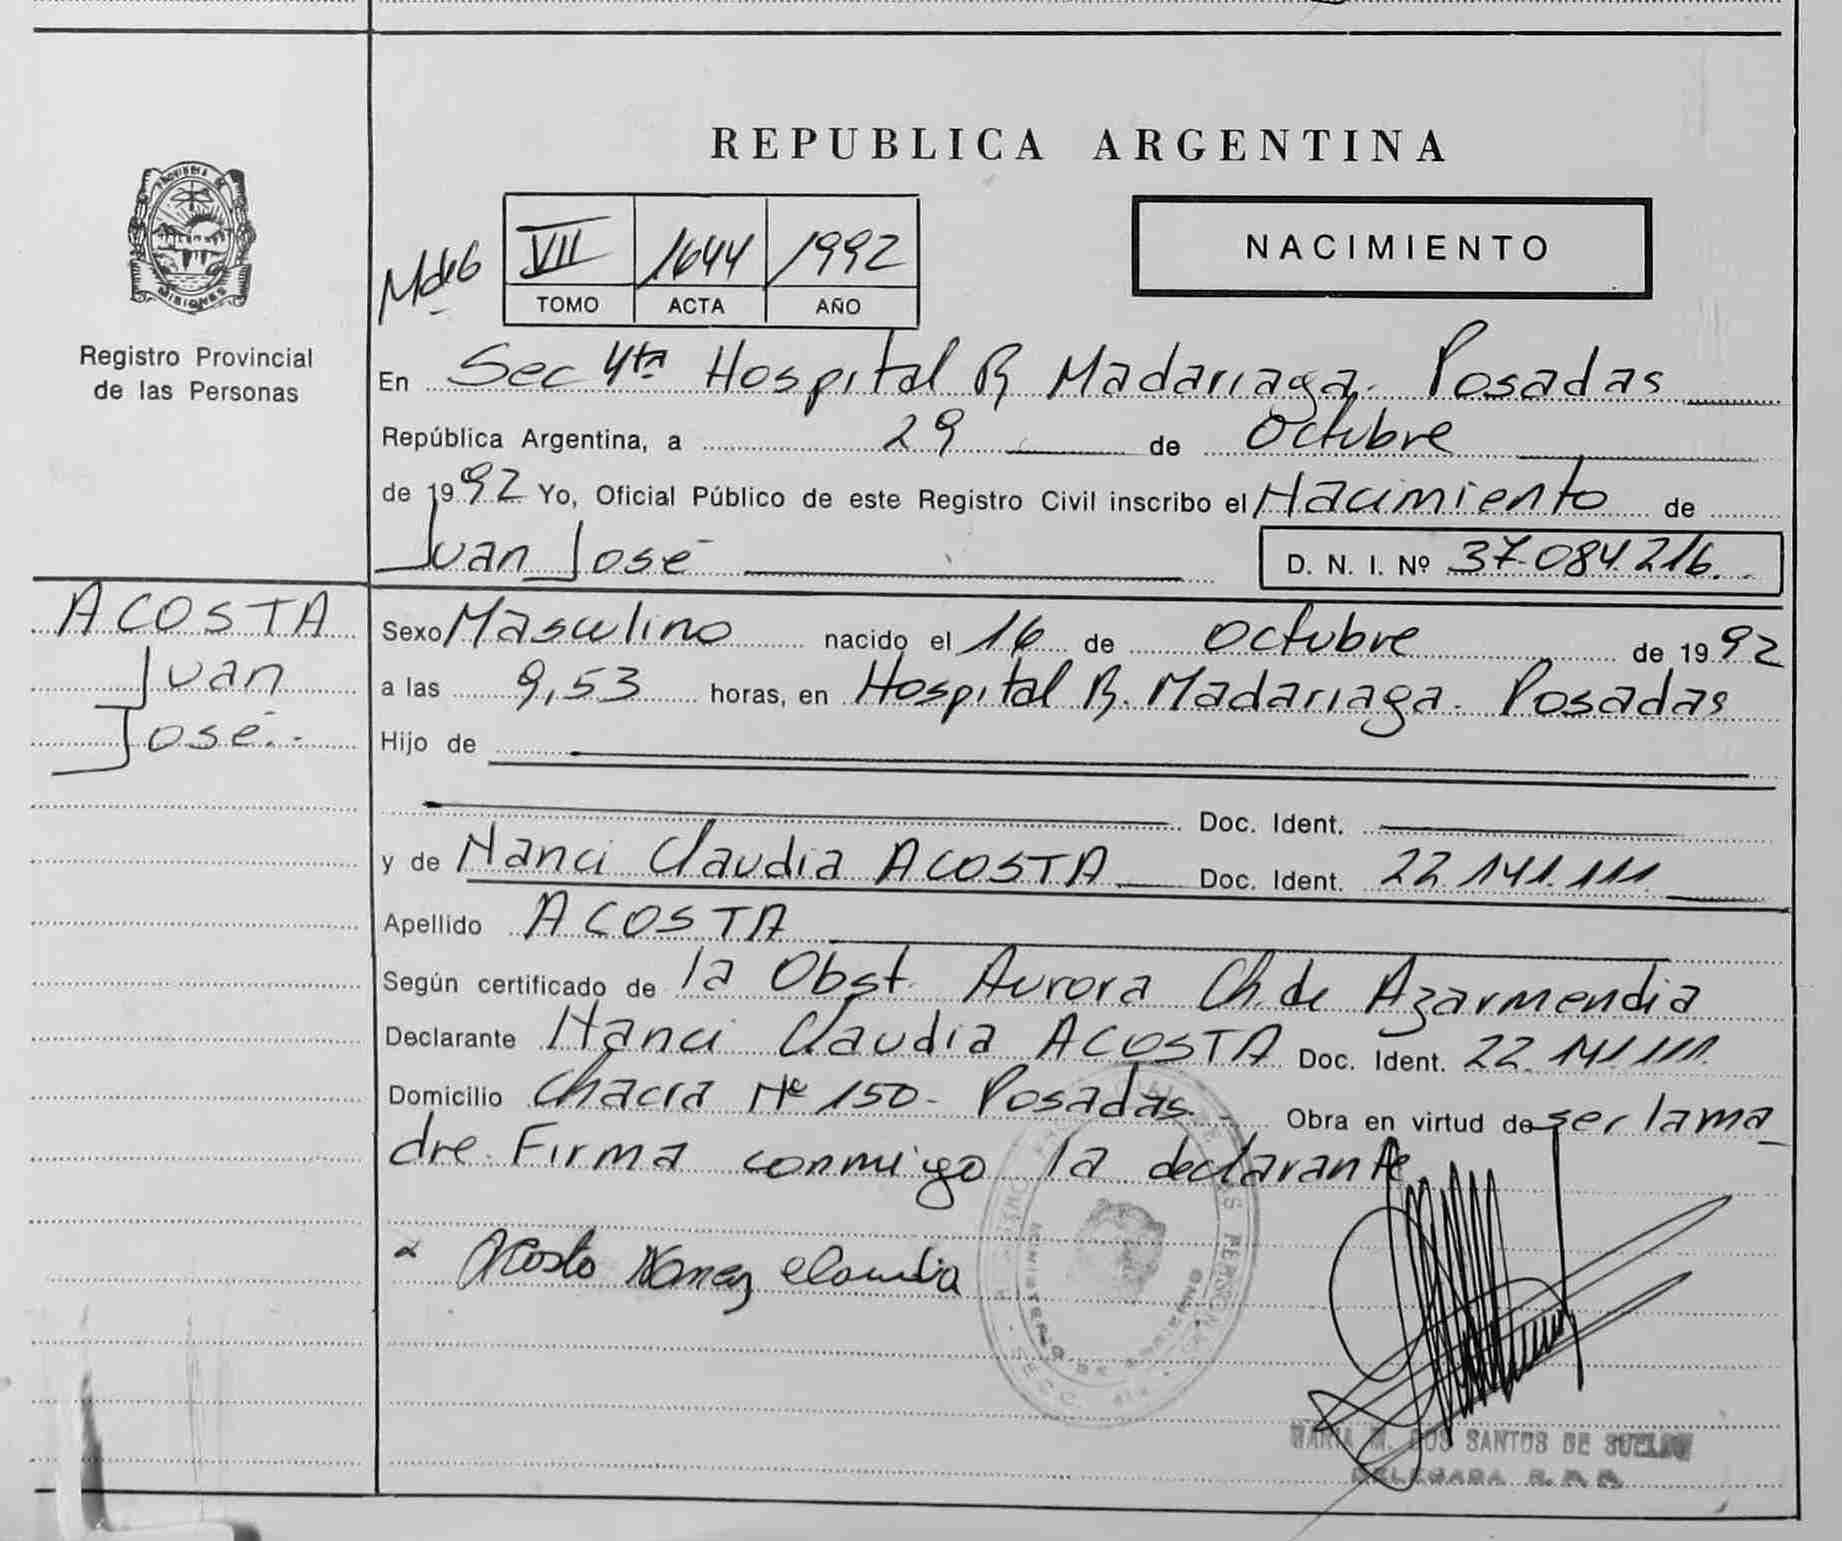 REPUBLICA ARGENTINA
PROVINCIA DE
MISIONES
Registro Provincial
de las Personas
VII 1644 1992
TOMO ACTA AÑO
NACIMIENTO
En Sec 4ta Hospital R Madariaga. Posadas
República Argentina, a 29 de Octubre
de 1992 Yo, Oficial Público de este Registro Civil inscribo el Nacimiento de
Juan José D. N. I. Nº 37.084.216.
ACOSTA
Juan
José.-
Sexo Masculino nacido el 16 de Octubre de 1992
a las 9,53 horas, en Hospital R. Madariaga. Posadas
Hijo de
Doc. Ident.
y de Nanci Claudia ACOSTA Doc. Ident. 22.141.111.
Apellido ACOSTA
Según certificado de la Obst. Aurora Ch. de Azarmendia
Declarante Nanci Claudia ACOSTA Doc. Ident. 22.141.111.
Domicilio Chacra Nº 150- Posadas.- Obra en virtud de ser la ma
dre. Firma conmigo la declarante
Acosta Nancy Claudia
MINISTERIO DE
SECC. 4ta
MARIA M. DOS SANTOS DE
DELEGADA R. P. P.